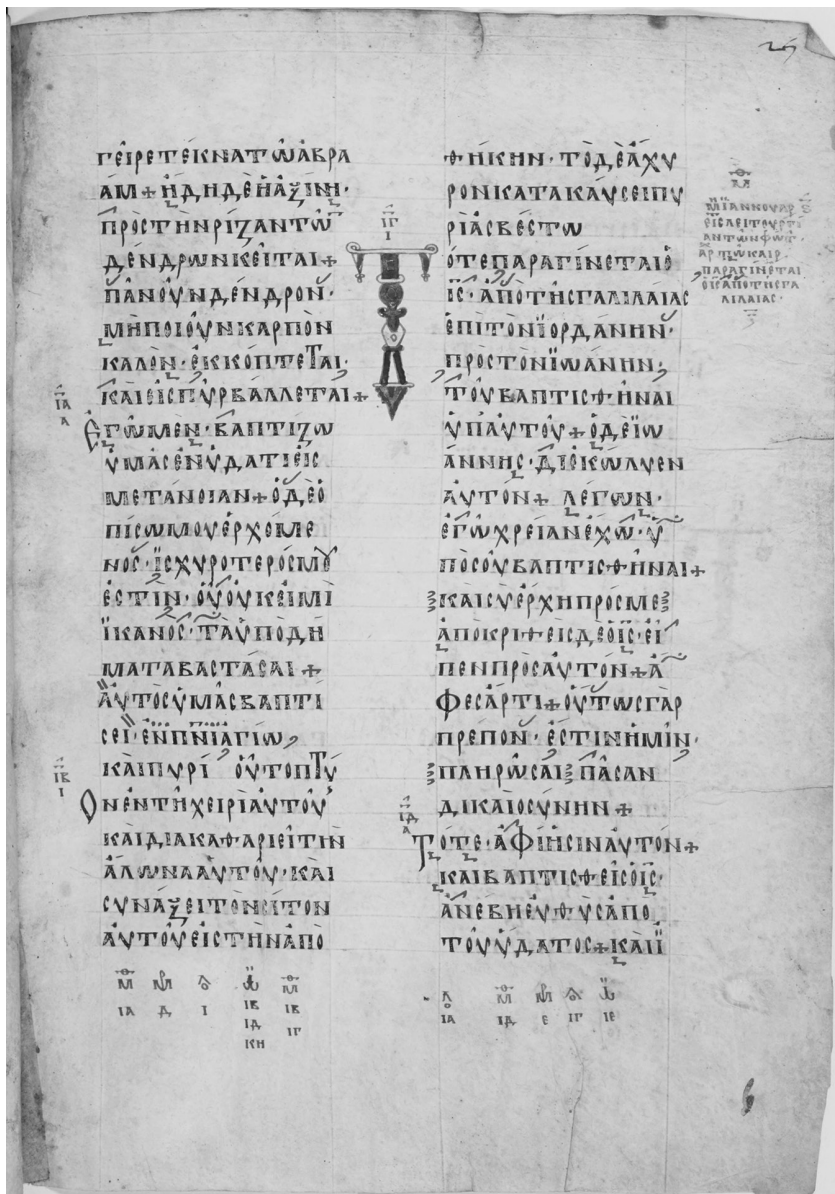 ΓΕΙΡΕΤΕΚΝΑΤΩΑΒΡΑ
ΑΜ+ΗΔΗΔΕΗΑΞΙΝΗ·
ΠΡΟΣΤΗΝΡΙΖΑΝΤΩ
ΔΕΝΔΡΩΝΚΕΙΤΑΙ+
ΠΑΝΟΥΝΔΕΝΔΡΟΝ·
ΜΗΠΟΙΟΥΝΚΑΡΠΟΝ
ΚΑΛΟΝ·ΕΚΚΟΠΤΕΤΑΙ·
ΚΑΙΕΙΣΠΥΡΒΑΛΛΕΤΑΙ+
ΙΑ
Α
ΕΓΩΜΕΝ·ΒΑΠΤΙΖΩ
ΥΜΑΣΕΝΥΔΑΤΙΕΙΣ
ΜΕΤΑΝΟΙΑΝ+ΟΔΕΟ
ΠΙΣΩΜΟΥΕΡΧΟΜΕ
ΝΟΣ·ΙΣΧΥΡΟΤΕΡΟΣΜΟΥ
ΕΣΤΙΝ·ΟΥΟΥΚΕΙΜΙ
ΙΚΑΝΟΣ·ΤΑΥΠΟΔΗ
ΜΑΤΑΒΑΣΤΑΣΑΙ+
ΑΥΤΟΣΥΜΑΣΒΑΠΤΙ
ΣΕΙ·ΕΝΠΝΙΑΓΙΩ
ΚΑΙΠΥΡΙ ΟΥΤΟΠΤΥ
ΙΒ
Ι
ΟΝΕΝΤΗΧΕΙΡΙΑΥΤΟΥ
ΚΑΙΔΙΑΚΑΘΑΡΙΕΙΤΗΝ
ΑΛΩΝΑΑΥΤΟΥ·ΚΑΙ
ΣΥΝΑΞΕΙΤΟΝΣΙΤΟΝ
ΑΥΤΟΥΕΙΣΤΗΝΑΠΟ
ΘΗΚΗΝ·ΤΟΔΕΑΧΥ
ΡΟΝΚΑΤΑΚΑΥΣΕΙΠΥ
ΡΙΑΣΒΕΣΤΩ
ΙΓ
Ι
ΤΟΤΕΠΑΡΑΓΙΝΕΤΑΙΟ
ΙΣ·ΑΠΟΤΗΣΓΑΛΙΛΑΙΑΣ
ΕΠΙΤΟΝΙΟΡΔΑΝΗΝ·
ΠΡΟΣΤΟΝΙΩΑΝΝΗΝ·
ΤΟΥΒΑΠΤΙΣΘΗΝΑΙ
ΥΠΑΥΤΟΥ+ΟΔΕΙΩ
ΑΝΝΗΣ·ΔΙΕΚΩΛΥΕΝ
ΑΥΤΟΝ+ΛΕΓΩΝ·
ΕΓΩΧΡΕΙΑΝΕΧΩ·Υ
ΠΟΣΟΥΒΑΠΤΙΣΘΗΝΑΙ+
ΚΑΙΣΥΕΡΧΗΠΡΟΣΜΕ
ΑΠΟΚΡΙΘΕΙΣΔΕΟΙΣ·ΕΙ
ΠΕΝΠΡΟΣΑΥΤΟΝ+Α
ΦΕΣΑΡΤΙ+ΟΥΤΩΣΓΑΡ
ΠΡΕΠΟΝ·ΕΣΤΙΝΗΜΙΝ·
ΠΛΗΡΩΣΑΙΠΑΣΑΝ
ΔΙΚΑΙΟΣΥΝΗΝ+
ΙΔ
Α
ΤΟΤΕ·ΑΦΙΗΣΙΝΑΥΤΟΝ+
ΚΑΙΒΑΠΤΙΣΘΕΙΣΟΙΣ·
ΑΝΕΒΗΕΥΘΥΣΑΠΟ
ΤΟΥΥΔΑΤΟΣ+ΚΑΙΙ
ΠΑΡΑΓΙΝΕΤΑΙ
ΟΙΣΑΠΟΤΗΣΓΑ
ΛΙΛΑΙΑΣ·
ΙΑ Δ Ι ΙΒ ΙΒ
ΙΔ ΙΓ
ΚΗ
ΙΑ ΙΔ Ε ΙΓ ΙΕ